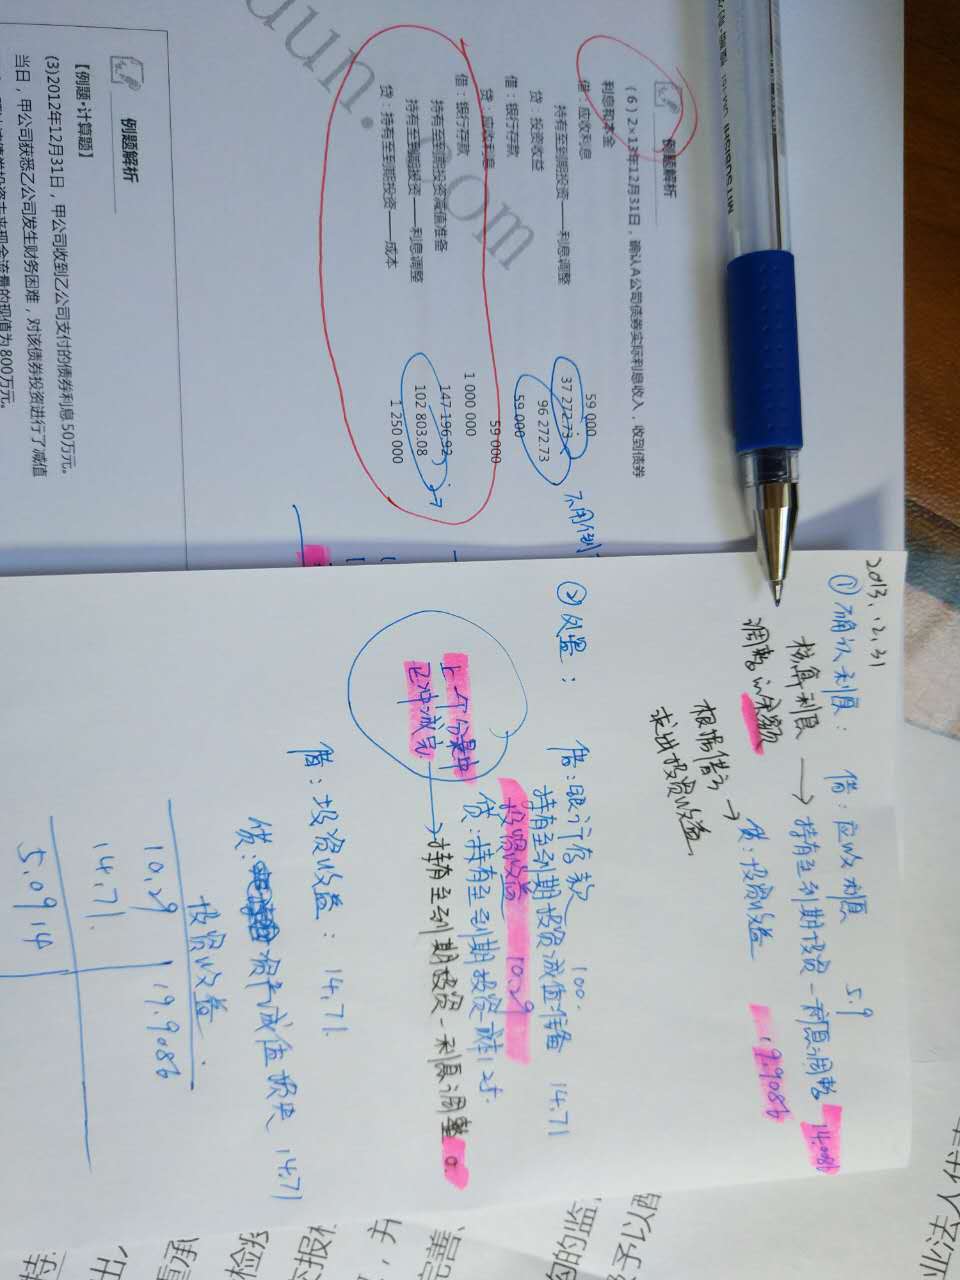 例题解析
(6) 2×13年12月31日，确认A公司债券实际利息收入，收到债券
利息和本金
借：应收利息 59 000
持有至到期投资——利息调整 37 272.73
贷：投资收益 96 272.73
借：银行存款 59 000
贷：应收利息 59 000
借：银行存款 1 000 000
持有至到期投资减值准备 147 196.92
持有至到期投资——利息调整 102 803.08
贷：持有至到期投资——成本 1 250 000
不用倒
dun.com
例题解析
【例题·计算题】
(3)2012年12月31日，甲公司收到乙公司支付的债券利息50万元。
当日，甲公司获悉乙公司发生财务困难，对该债券投资进行了减值
未来现金流量的现值为800万元。
2013.12.31
①确认利息： 借：应收利息 5.9
核算利息 → 持有至到期投资-利息调整 14.0086
调整的余额 贷：投资收益 19.9086
根据借方 →
求出投资收益
②处置： 借：银行存款 100.
持有至到期投资减值准备 14.71
投资收益 10.29
贷：持有至到期投资-成本 125.
上一个分录中
已冲减完 → 持有至到期投资-利息调整 0.
借：投资收益： 14.71
贷： 资产减值损失 14.71
投资收益
10.29 19.9086
14.71
5.0914
业法人
予以配
的监
完善、
，并
报
检
重承
出
持